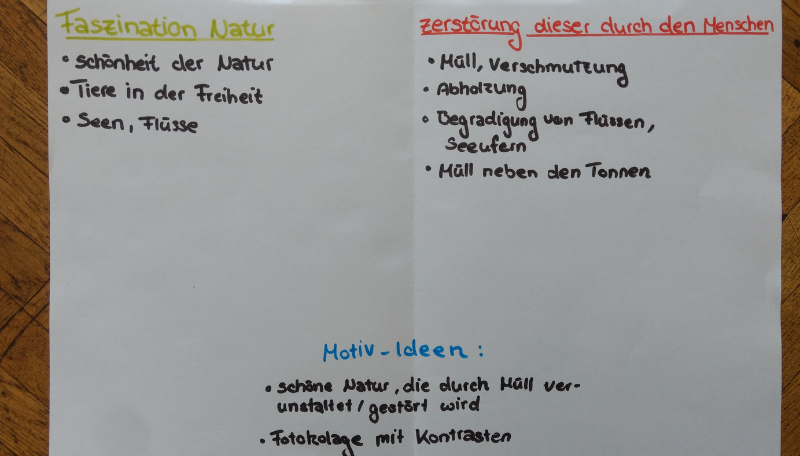 Faszination Natur
• Schönheit der Natur
• Tiere in der Freiheit
• Seen, Flüsse
Zerstörung dieser durch den Menschen
• Müll, Verschmutzung
• Abholzung
• Begradigung von Flüssen,
Seeufern
• Müll neben den Tonnen
Motiv-Ideen:
• schöne Natur, die durch Müll ver-
unstaltet/gestört wird
• Fotokolage mit Kontrasten